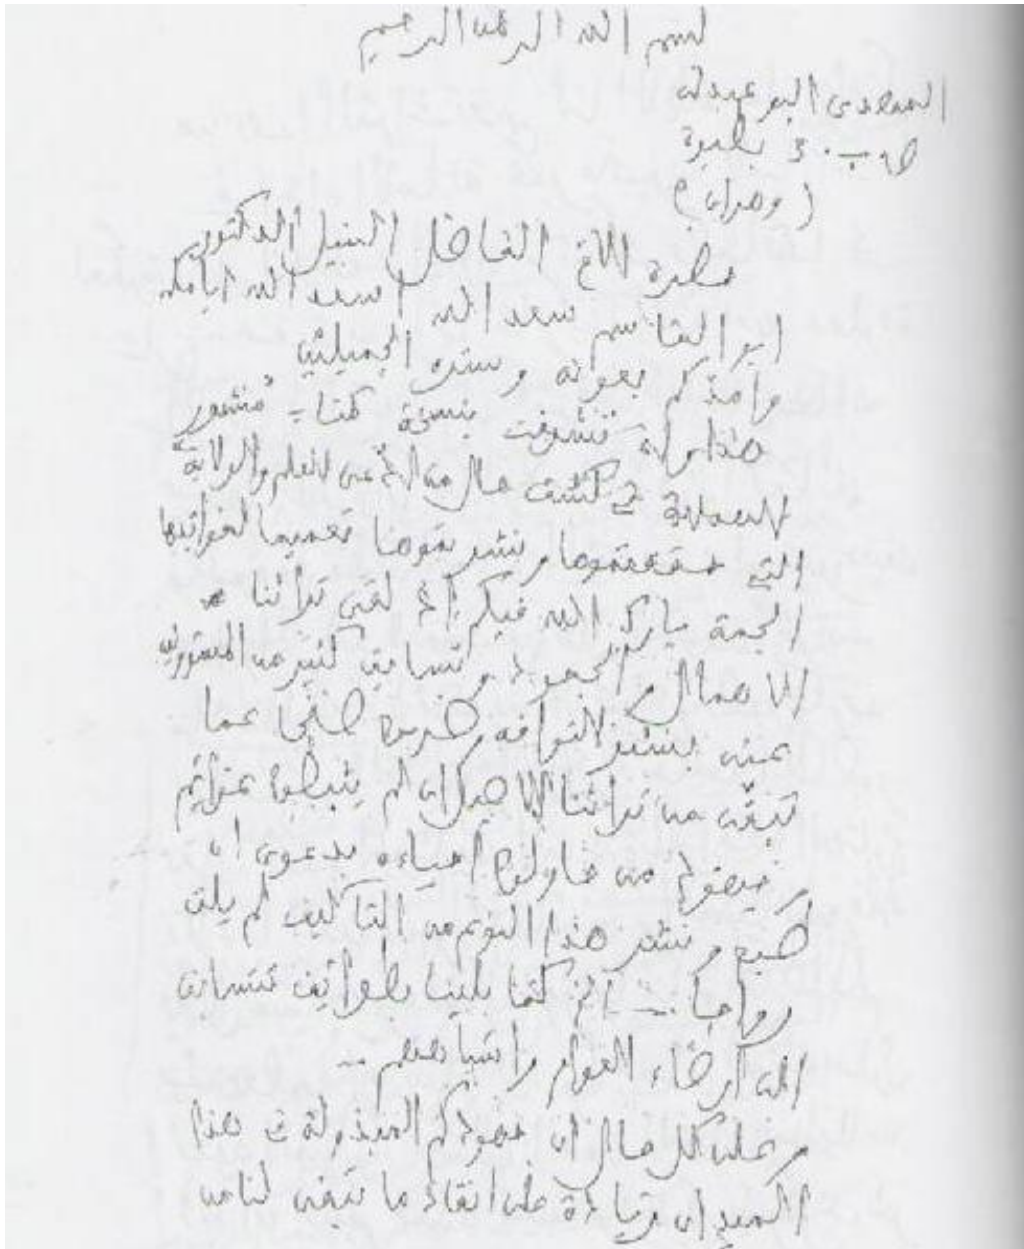 بسم الله الرحمن الرحيم
المهدي البوعبدلي
ص.ب. 3 بطيوة
(وهران)
حضرة الأخ الفاضل النبيل الدكتور
ابو القاسم سعد الله اسعد الله ايامكم
وامدكم بعونه وستره الجميلين
هذا وإن تشرفت بنسخة كتاب منشور
الهداية في كشف حال من ادعى العلم والولاية
التي حققتموها ونشرتموها تعميما لفوائدها
الجمة بارك الله فيكم إذ لقي تراثنا
الاهمال والجحود وتسابق كثير من المسؤولين
عنه بنشر التوافه وضربوا صفحا عما
تبقى من تراثنا الاصيل ان لم يثبطوا عزائم
من حاولوا احياءه بدعوى ان
طبع ونشر هذا النوع من التآليف لم يلق
رواجا ... الخ كما بلينا بطوائف تتسابق
الى ارضاء العوام واشباههم ..
وعلى كل حال ان جهودكم المبذولة في هذا
الميدان على انقاذ ما تبقى لنا من